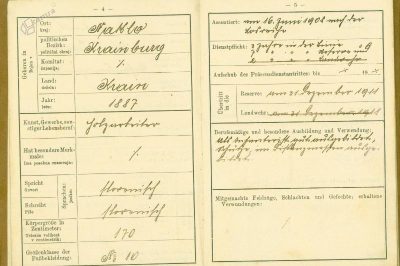 — 4 —
Geboren in
Rojen v
Ort:
kraj:
Naklo
politischen
Bezirk:
politični okraj:
Krainburg
Komitat:
županija:
Land:
dežela:
Krain
Jahr:
leto:
1887
Kunst, Gewerbe, sonstiger Lebensberuf:
Holzarbeiter
Hat besondere Merkmale:
Ima posebna znamenja:
Spricht
Govori
Sprachen:
slovenisch
Schreibt
Piše
slovenisch
Körpergröße in
Zentimeter:
Telesna velikost
v centimetrih:
170
Größenklasse der
Fußbekleidung:
No 10
— 5 —
Assentiert:
am 16. Juni 1908 nach der
Losreihe
Dienstpflicht:
3 Jahre in der Linie
Aufschub des Präsenzdienstantrittes: bis
Übersetzt
in die
Reserve: am 31. Dezember 1911
Landwehr: am 31. Dezember 1918
Berufsmäßige und besondere Ausbildung und Verwendung:
Als Infanterist gut ausgebildet,
Mitgemachte Feldzüge, Schlachten und Gefechte; erhaltene
Verwundungen: